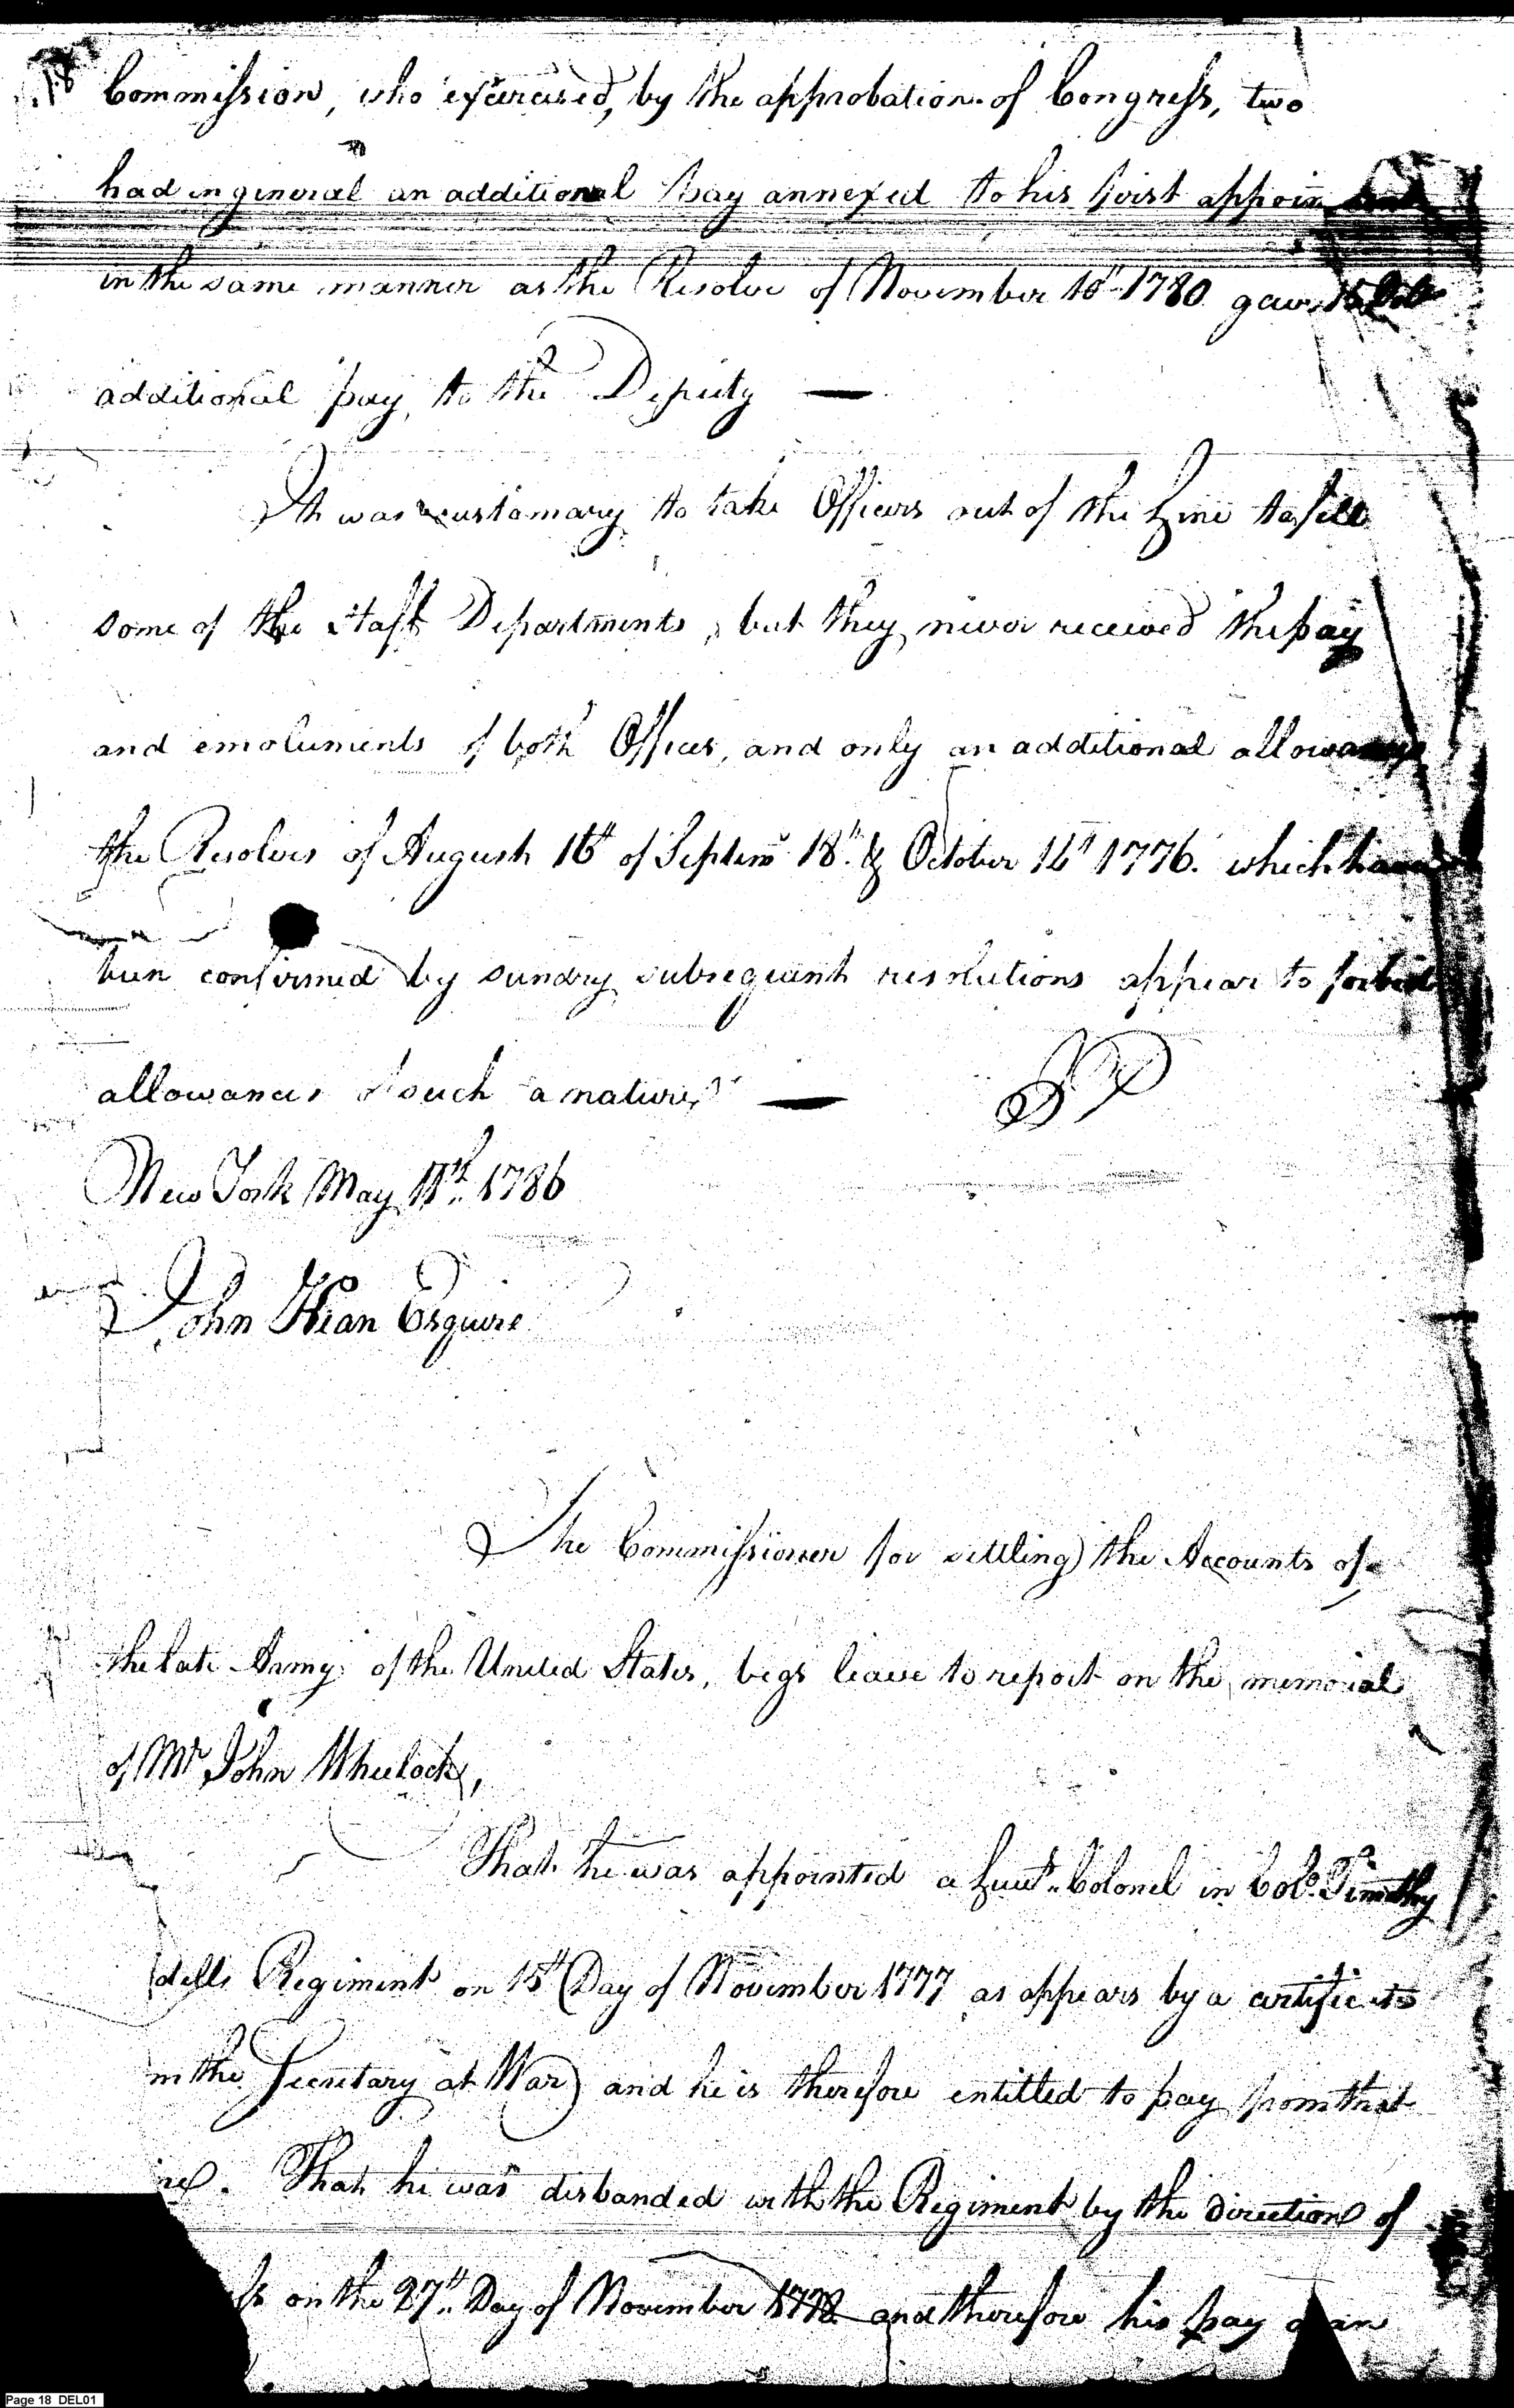 18 Commission, who exercised, by the approbation of Congress, two
had in general an additional pay annexed to his first
in the same manner as the Resolve of November 10th 1780 gave 15 Dolls
additional pay, to the Deputy —
It was customary to take Officers out of the Line to fill
some of the Staff Departments, but they never received the pay
and emoluments of both Offices, and only an additional allowance,
the Resolves of August 16th of Septemr 18th & October 14th 1776. which have
been confirmed by sundry subsequent resolutions appear to forbid
allowances of such a nature —
New York May 11th 1786
John Kean Esquire
The Commissioner for settling the Accounts of
the late Army of the United States, begs leave to report on the memorial
of Mr John Wheelock,
That he was appointed a Lieut. Colonel in Colo. Timothy
dells Regiment on 15th Day of November 1777 as appears by a certificate
m the Secretary at War and he is therefore entitled to pay from that
me. That he was disbanded with the Regiment by the direction of
ss on the 27th Day of November and therefore his pay
Page 18 DEL01